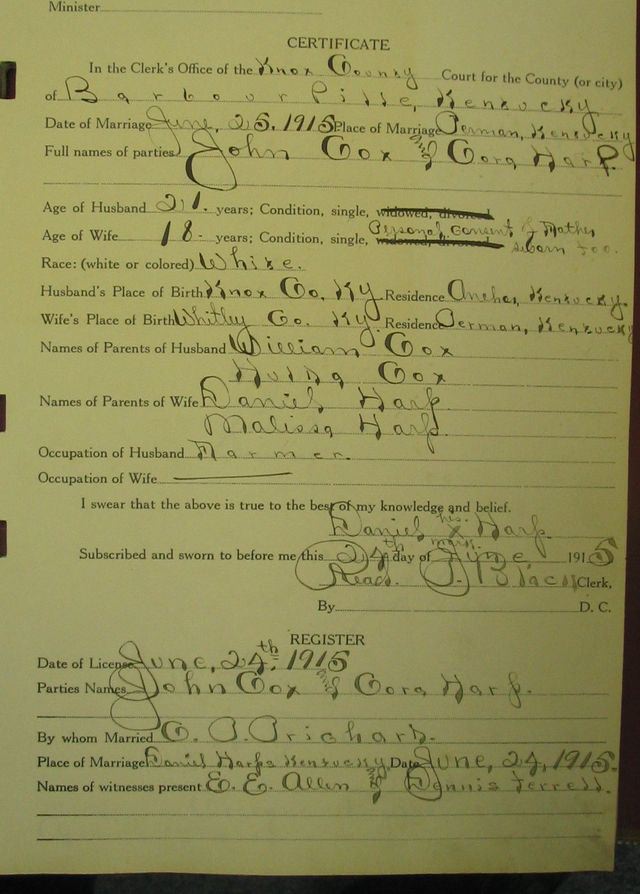 Minister
CERTIFICATE
In the Clerk's Office of the Knox County Court for the County (or city)
of Barbourville, Kentucky
Date of Marriage June, 25, 1915 Place of Marriage Perman, Kentucky
Full names of parties John Cox & Cora Harp
Age of Husband 21. years; Condition, single, widowed, divorced
Personal consent of Father
Age of Wife 18- years; Condition, single, widowed, divorced sworn too.
Race: (white or colored) White.
Husband's Place of Birth Knox Co. Ky. Residence Kentucky.
Wife's Place of Birth Whitley Co. Ky. Residence Perman, Kentucky
Names of Parents of Husband William Cox
Hulda Cox
Names of Parents of Wife Daniel Harp
Malissa Harp.
Occupation of Husband Farmer.
Occupation of Wife
I swear that the above is true to the best of my knowledge and belief.
Daniel his x mark Harp.
Subscribed and sworn to before me this 24th day of June. 1915
Read. P. Black Clerk,
By D. C.
REGISTER
Date of License June, 24th. 1915
Parties Names John Cox & Cora Harp.
By whom Married Prichard.
Place of Marriage Daniel Harps Kentucky Date June, 24, 1915.
Names of witnesses present E. E. Allen & Dennis Ferrell.